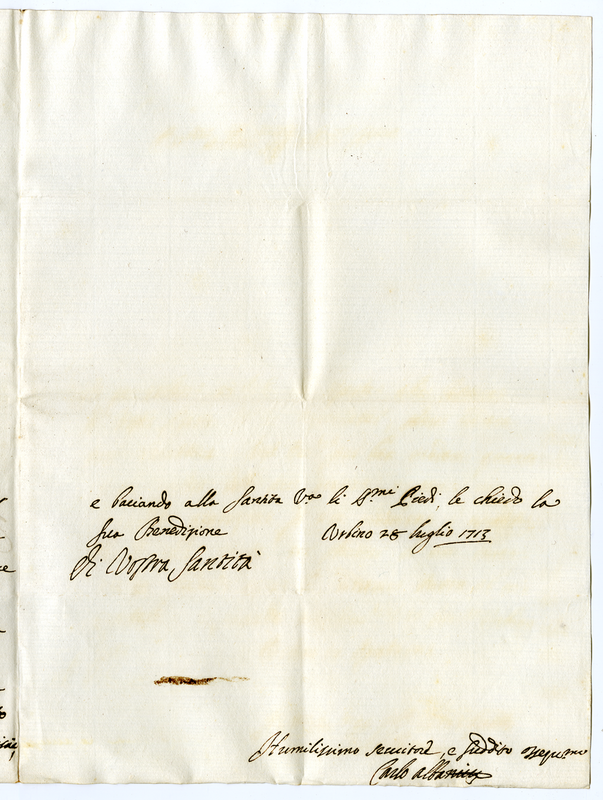 e baciando alla Santità V.ra li S.mi Piedi, le chiedo la
sua Benedizione Urbino 28 luglio 1713
Di Vostra Santità
Humilissimo servitore, e suddito osseq.mo
Carlo Albani